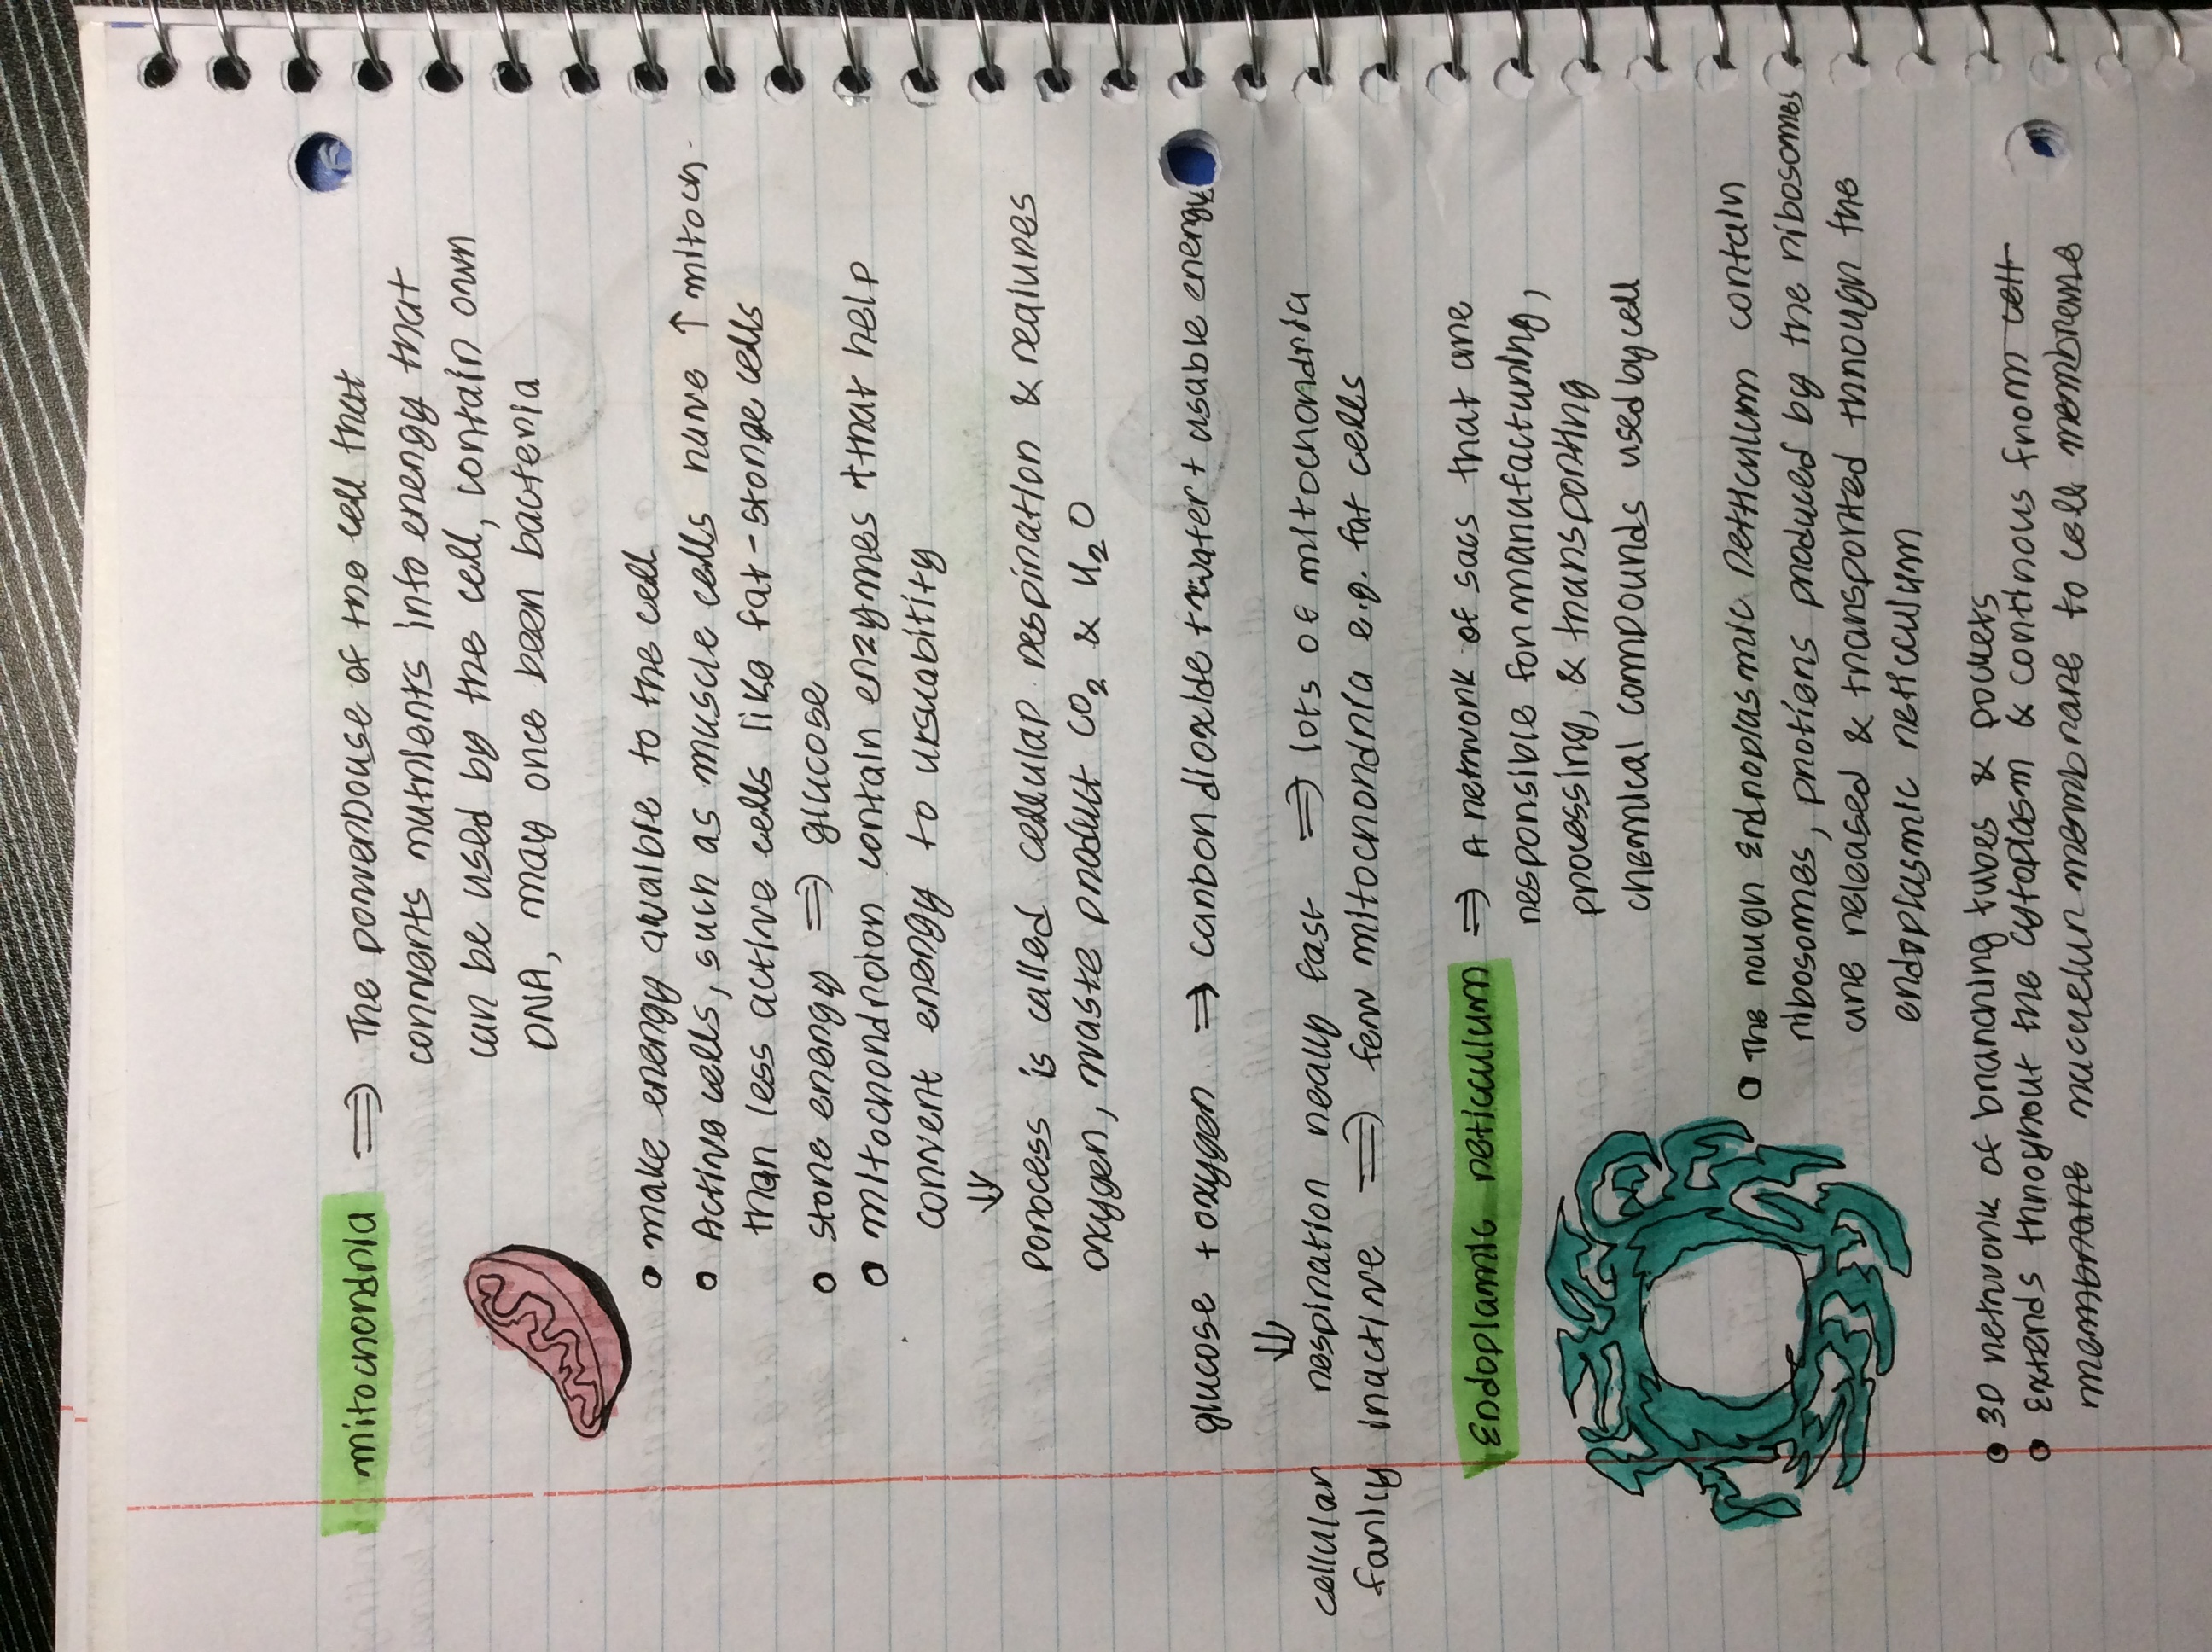 mitochondria ⇒ The powerhouse of the cell that
converts nutrients into energy that
can be used by the cell, contain own
DNA, may once been bacteria
• make energy avaible to the cell
• Active cells, such as muscle cells have ↑ mitoch.
than less active cells like fat-storage cells
• store energy ⇒ glucose
• mitochondrion contain enzymes that help
convert energy to usability
↓
process is called cellular respiration & requires
oxygen, waste product CO₂ & H₂O
glucose + oxygen ⇒ carbon dioxide + water + usable energy
↓
cellular respiration really fast ⇒ lots of mitochondria
fairly inactive ⇒ few mitochondria e.g. fat cells
Endoplamic reticulum ⇒ A network of sacs that are
responsible for manufacturing,
processing, & transporting
chemical compounds used by cell
• The rough Endoplasmic reticulum contain
ribosomes, protiens produced by the ribosomes
are released & transported through the
endoplasmic reticulum
• 3D network of branching tubes & pockets
• Extends throyhout the cytoplasm & continous from cell
membrane nuculeur membrane to cell membrane